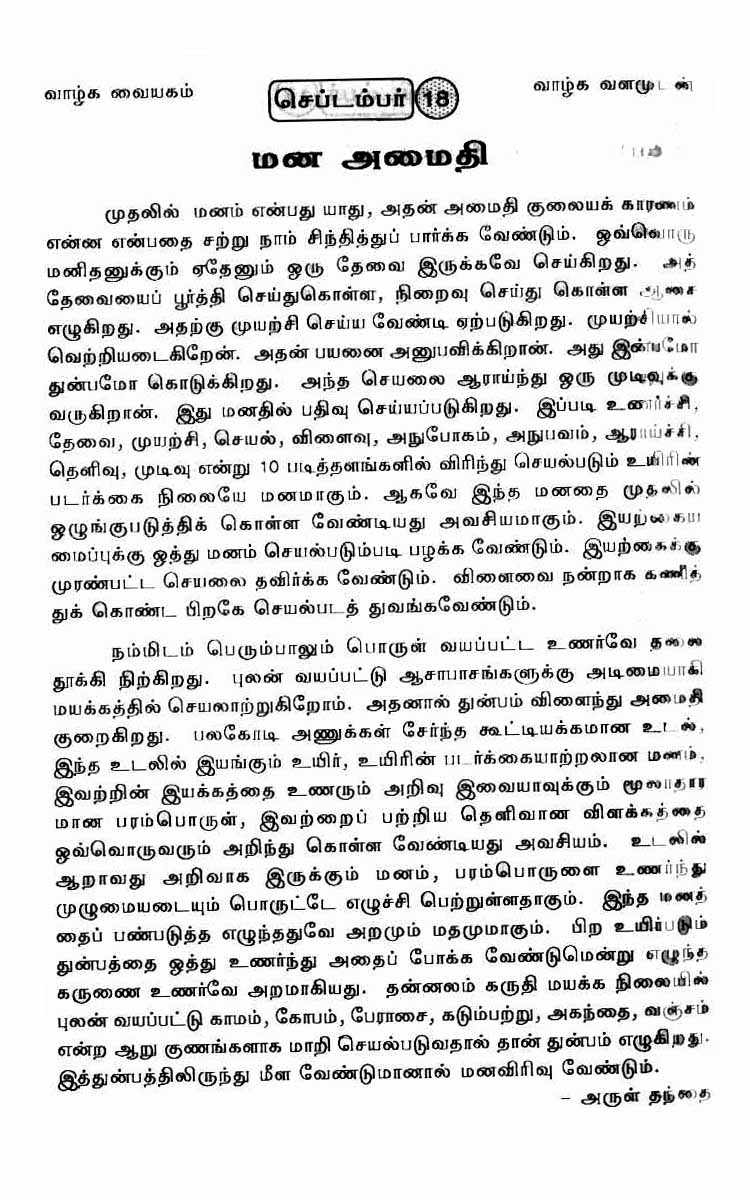 வாழ்க வையகம்
செப்டம்பர் 18
வாழ்க வளமுடன்
மன அமைதி
முதலில் மனம் என்பது யாது, அதன் அமைதி குலையக் காரணம்
என்ன என்பதை சற்று நாம் சிந்தித்துப் பார்க்க வேண்டும். ஒவ்வொரு
மனிதனுக்கும் ஏதேனும் ஒரு தேவை இருக்கவே செய்கிறது. அத்
தேவையைப் பூர்த்தி செய்துகொள்ள, நிறைவு செய்து கொள்ள ஆசை
எழுகிறது. அதற்கு முயற்சி செய்ய வேண்டி ஏற்படுகிறது. முயற்சியால்
வெற்றியடைகிறேன். அதன் பயனை அனுபவிக்கிறான். அது இன்பமோ
துன்பமோ கொடுக்கிறது. அந்த செயலை ஆராய்ந்து ஒரு முடிவுக்கு
வருகிறான். இது மனதில் பதிவு செய்யப்படுகிறது. இப்படி உணர்ச்சி,
தேவை, முயற்சி, செயல், விளைவு, அநுபோகம், அநுபவம், ஆராய்ச்சி,
தெளிவு, முடிவு என்று 10 படித்தளங்களில் விரிந்து செயல்படும் உயிரின்
படர்க்கை நிலையே மனமாகும். ஆகவே இந்த மனதை முதலில்
ஒழுங்குபடுத்திக் கொள்ள வேண்டியது அவசியமாகும். இயற்கைய
மைப்புக்கு ஒத்து மனம் செயல்படும்படி பழக்க வேண்டும். இயற்கைக்கு
முரண்பட்ட செயலை தவிர்க்க வேண்டும். விளைவை நன்றாக கணித்
துக் கொண்ட பிறகே செயல்படத் துவங்கவேண்டும்.
நம்மிடம் பெரும்பாலும் பொருள் வயப்பட்ட உணர்வே தலை
தூக்கி நிற்கிறது. புலன் வயப்பட்டு ஆசாபாசங்களுக்கு அடிமையாகி
மயக்கத்தில் செயலாற்றுகிறோம். அதனால் துன்பம் விளைந்து அமைதி
குறைகிறது. பலகோடி அணுக்கள் சேர்ந்த கூட்டியக்கமான உடல்,
இந்த உடலில் இயங்கும் உயிர், உயிரின் படர்க்கையாற்றலான மனம்,
இவற்றின் இயக்கத்தை உணரும் அறிவு இவையாவுக்கும் மூலாதார
மான பரம்பொருள், இவற்றைப் பற்றிய தெளிவான விளக்கத்தை
ஒவ்வொருவரும் அறிந்து கொள்ள வேண்டியது அவசியம். உடலில்
ஆறாவது அறிவாக இருக்கும் மனம், பரம்பொருளை உணர்ந்து
முழுமையடையும் பொருட்டே எழுச்சி பெற்றுள்ளதாகும். இந்த மனத்
தைப் பண்படுத்த எழுந்ததுவே அறமும் மதமுமாகும். பிற உயிர்படும்
துன்பத்தை ஒத்து உணர்ந்து அதைப் போக்க வேண்டுமென்று எழுந்த
கருணை உணர்வே அறமாகியது. தன்னலம் கருதி மயக்க நிலையில்
புலன் வயப்பட்டு காமம், கோபம், பேராசை, கடும்பற்று, அகந்தை, வஞ்சம்
என்ற ஆறு குணங்களாக மாறி செயல்படுவதால் தான் துன்பம் எழுகிறது.
இத்துன்பத்திலிருந்து மீள வேண்டுமானால் மனவிரிவு வேண்டும்.
– அருள் தந்தை